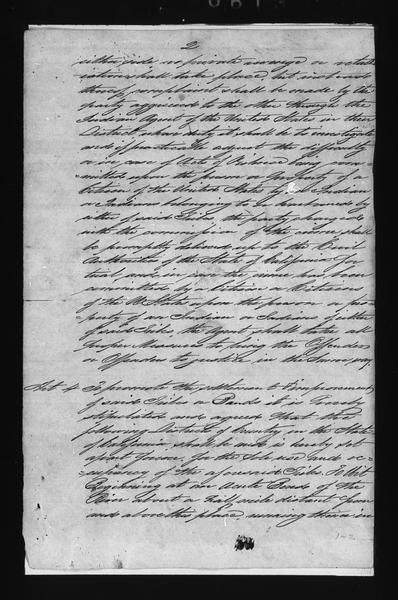 2
either side no private revenge or retali
ation shall take place, but instead
thereof complaint shall be made by the
party aggrieved to the other through the
Indian Agent of the United States in their
District whose duty it shall be to investigate
and if practicable adjust the difficulty
or in case of Acts of Violence being com=
mitted upon the person or property of a
Citizen of the United States by an Indian
or Indians belonging to or harbored by
either of said Tribes the party charged
with the commission of the crime shall
be promptly delivered up to the Civil
Authorities of the State of California for
trial and in case the crime has been
committed by Citizen or Citizens
of the U. States upon the person or pro
perty of an Indian or Indians of either
of said Tribes the Agent shall take all
proper measures to bring the Offender
or Offenders to justice in the same way
Art 4 To promote the settlement & improvement
of said Tribes or Bands it is hereby
stipulated and agreed that the
following District of Country in the State
of California shall be and is hereby set
apart forever for the sole use and oc=
cupancy of the aforesaid Tribes To Wit
Beginning at an Acute Bend of the
River about a half mile distant from
and above this place, running thence in